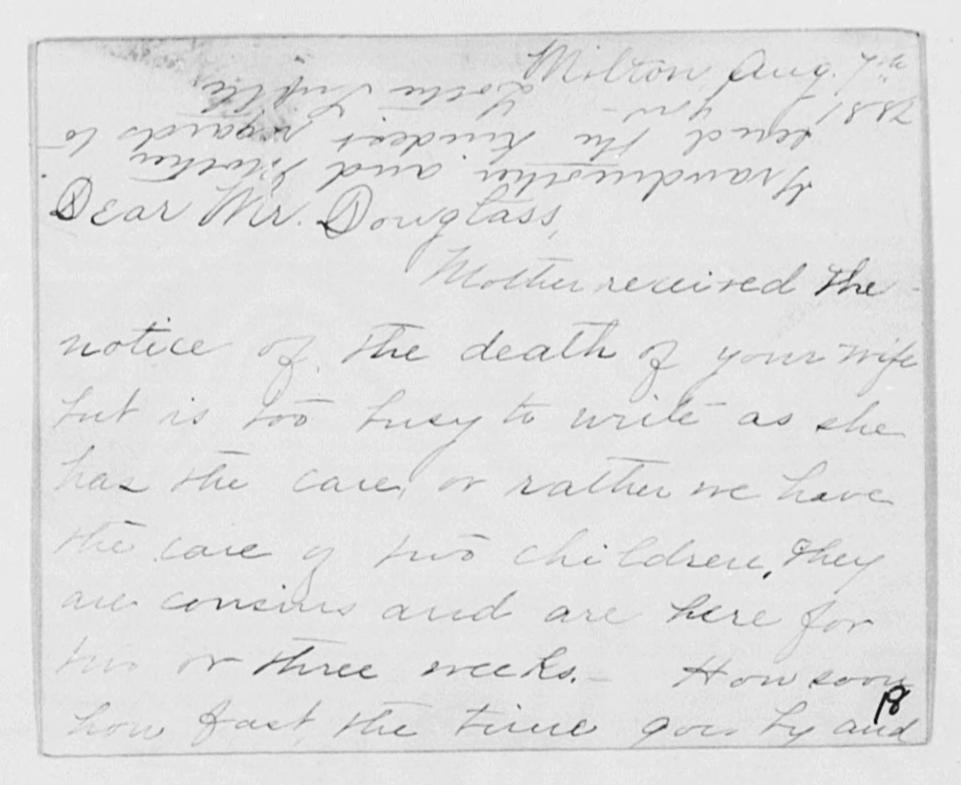 Milton Aug. 7th
1882
Dear Mr. Douglass,
Mother received the
notice of the death of your wife
but is too busy to write as she
has the care, or rather we have
the care of two children, they
are cousins and are here for
two or three weeks.- How soon
how fast the time goes by and
18
Grandmother and Mother
send the kindest regards to
you -